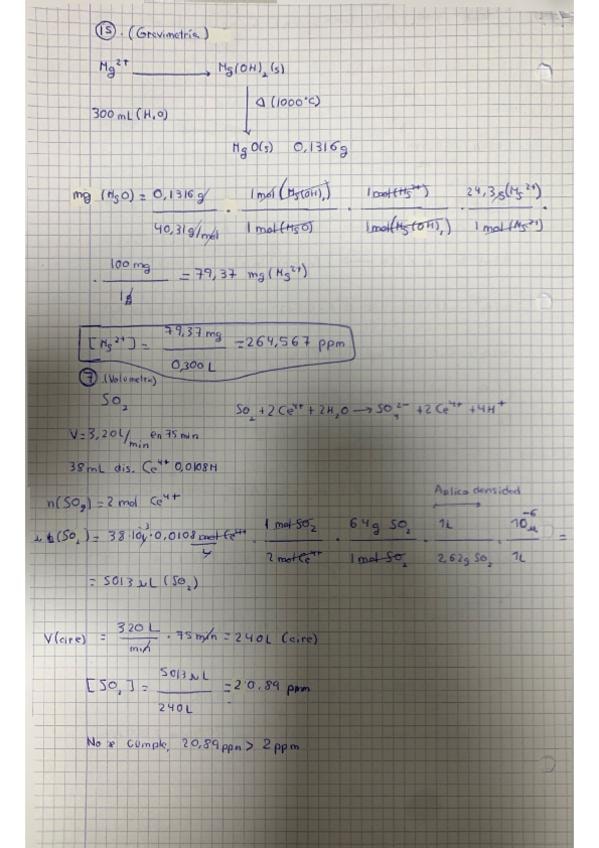 15. (Gravimetría)
Mg²⁺ ⟶ Mg(OH)₂(s)
Δ (1000°C)
300 mL (H₂O)
MgO(s) 0,1316g
mg (MgO) = 0,1316g / 40,31g/mol · 1mol (Mg(OH)₂) / 1mol (MgO) · 1mol (Mg²⁺) / 1mol (Mg(OH)₂) · 24,3g (Mg²⁺) / 1mol (Mg²⁺) ·
· 100mg / 1g = 79,37 mg (Mg²⁺)
[Mg²⁺] = 79,37 mg / 0,300L = 264,567 ppm
7 (Volumetría)
SO₂
SO₂ + 2Ce⁴⁺ + 2H₂O ⟶ SO₄²⁻ + 2Ce⁴⁺ + 4H⁺
V = 3,20L/min en 75 min
38mL dis. Ce⁴⁺ 0,0108M
Aplico densidad
n(SO₂) = 2 mol Ce⁴⁺
(SO₂) = 38·10⁻³ · 0,0108 mol Ce⁴⁺ · 1 mol SO₂ / 2 mol Ce⁴⁺ · 64g SO₂ / 1mol SO₂ · 1L / 2,62g SO₂ · 10⁻⁶μ / 1L =
= 5013 μL (SO₂)
V(aire) = 320L / min · 75min = 240L (aire)
[SO₂] = 5013 μL / 240L = 20.89 ppm
No cumple, 20,89ppm > 2ppm